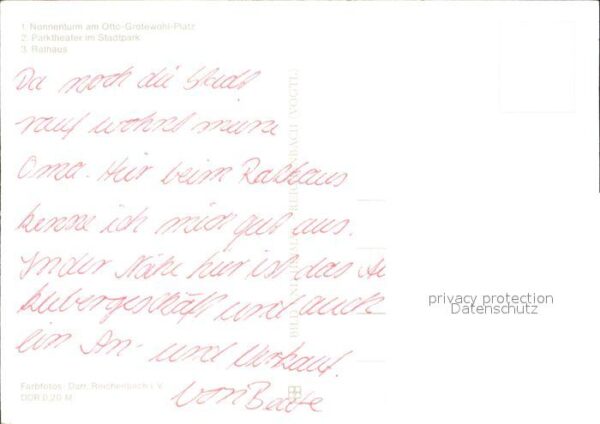 1. Nonnenturm am Otto-Grotewohl-Platz
2. Parktheater im Stadtpark
3. Rathaus
Da noch die Stadt
rauf wohnt meine
Oma. Hier beim Rathaus
kenne ich mich gut aus.
In der Nähe hier ist das
und auch
ein An- und Verkauf.
von Beate
privacy protection
Datenschutz
Farbfotos: Darr, Reichenbach i. V.
DDR 0,20 M